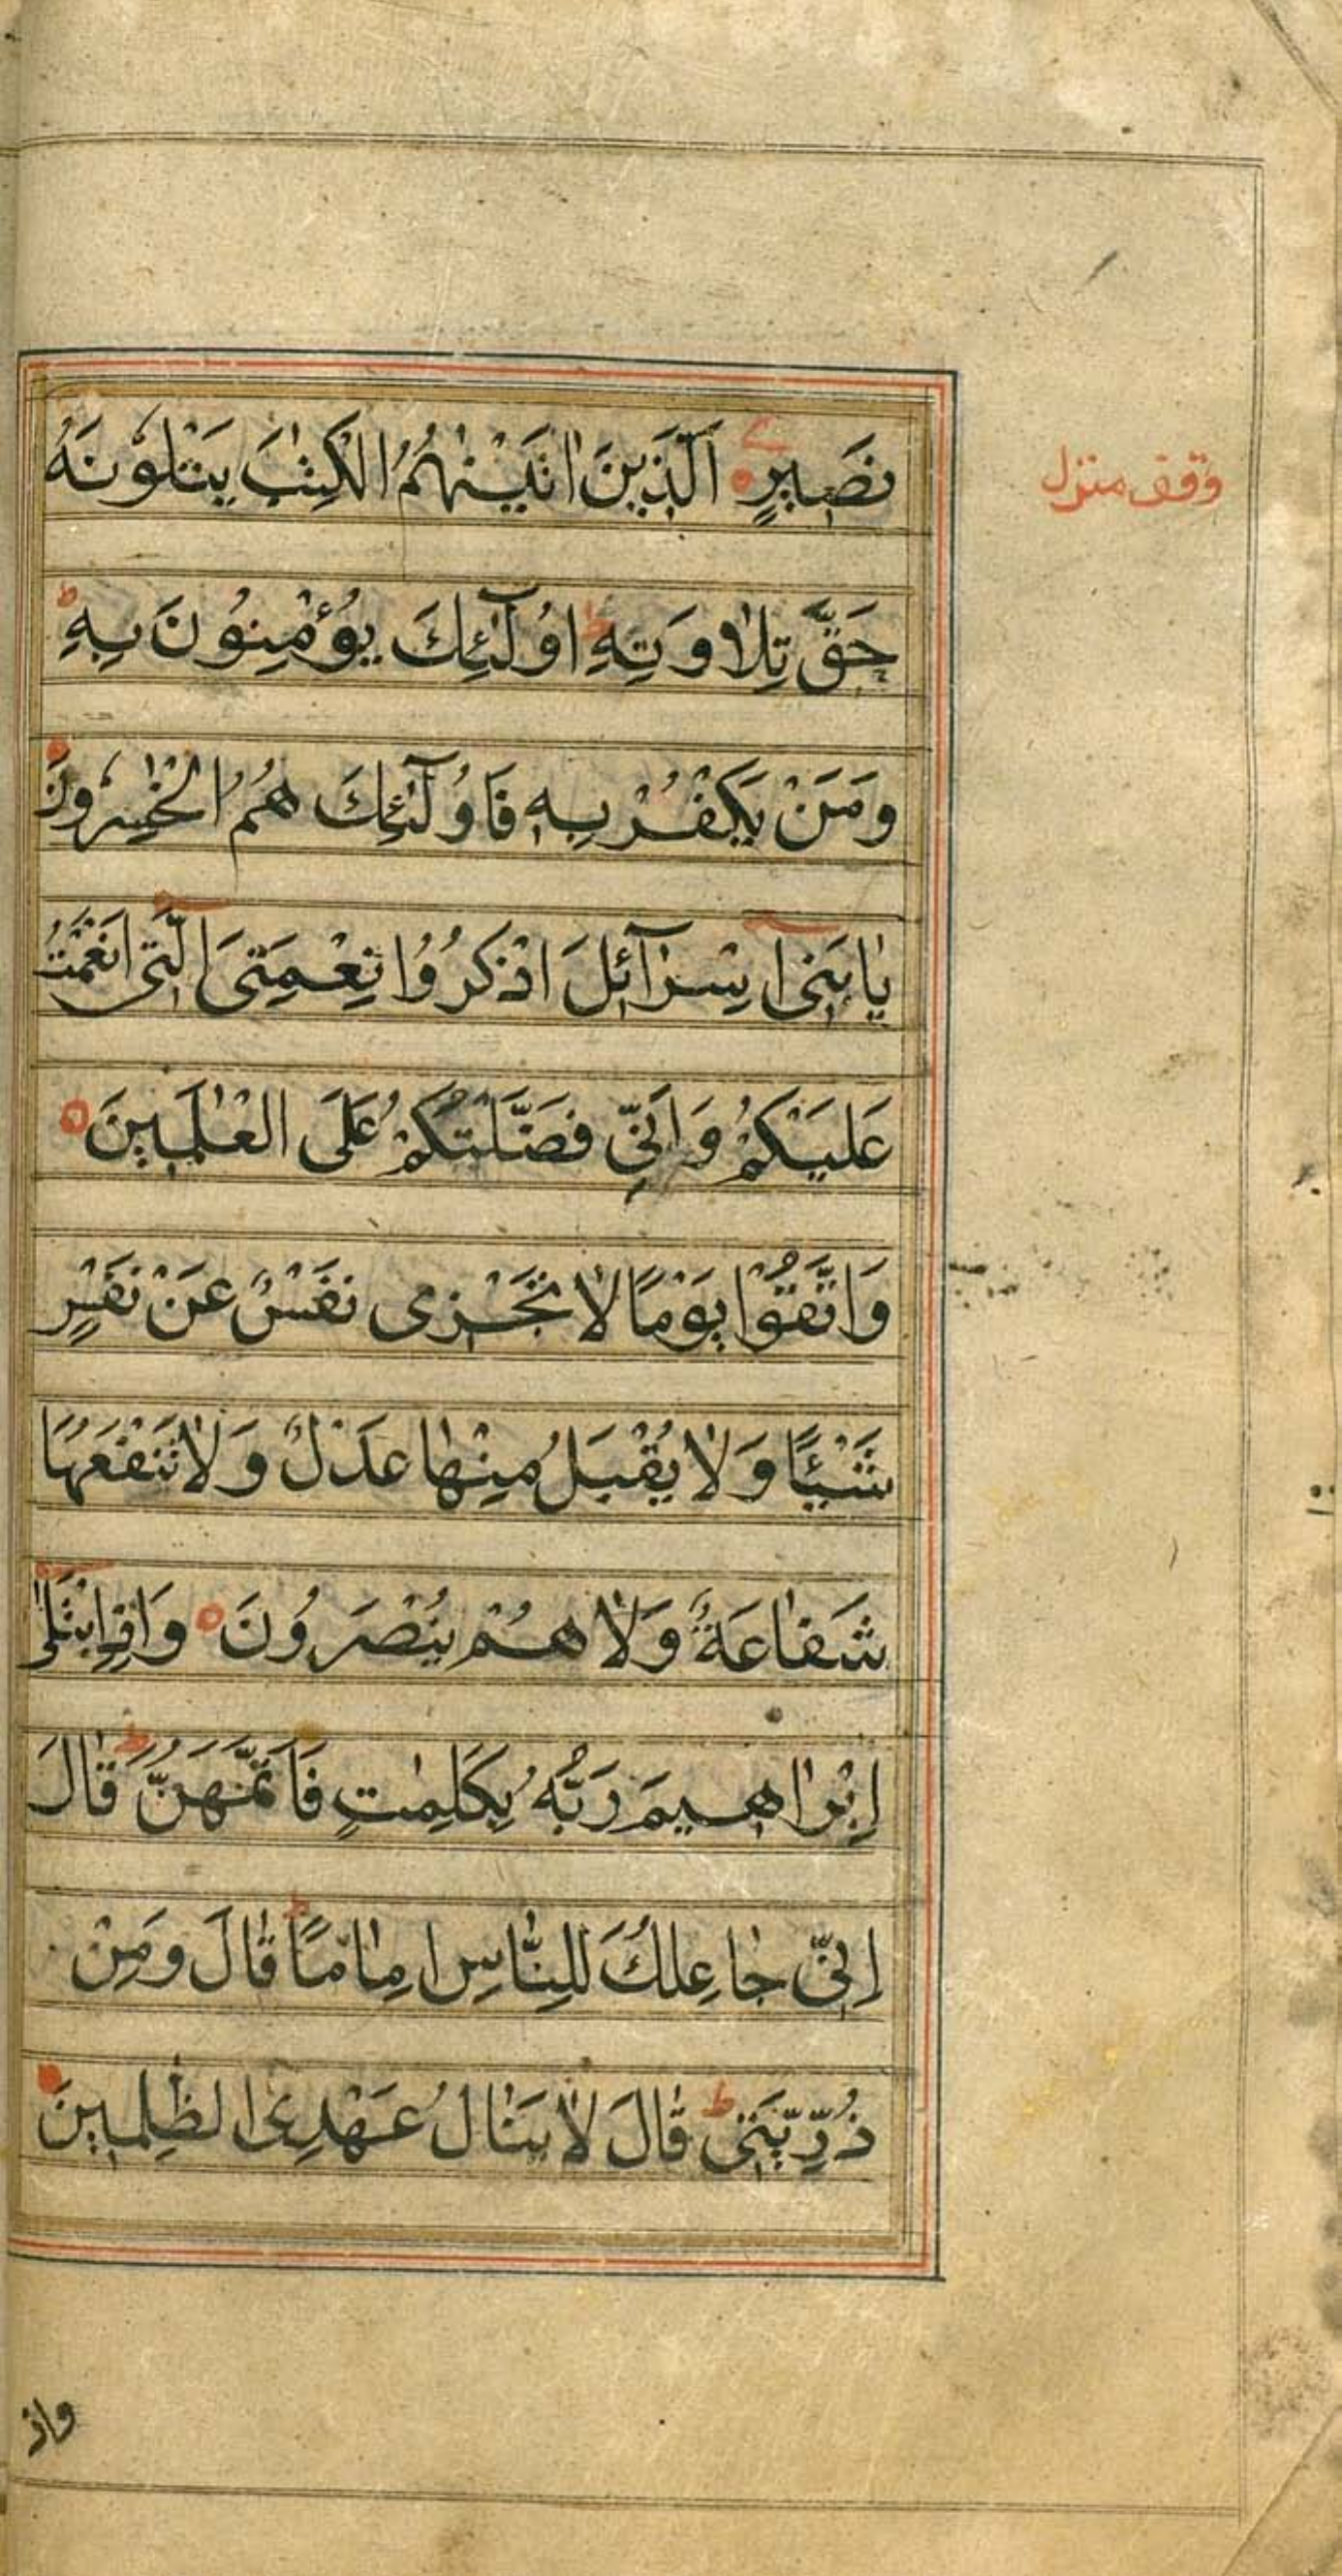 نَصِيرٍ ۝ اَلَّذِينَ اٰتَيْنٰهُمُ الْكِتٰبَ يَتْلُوْنَهُ
وقف منزل
حَقَّ تِلَاوَتِهِ ط اُولٰٓئِكَ يُؤْمِنُوْنَ بِهِ ط
وَمَنْ يَكْفُرْ بِهِ فَاُولٰٓئِكَ هُمُ الْخٰسِرُونَ ۝
يٰابَنِىٓ اِسْرَآئِلَ اذْكُرُوْا نِعْمَتِىَ الَّتِىٓ اَنْعَمْتُ
عَلَيْكُمْ وَاَنِّى فَضَّلْتُكُمْ عَلَى الْعٰلَمِينَ ۝
وَاتَّقُوْا يَوْمًا لَا تَجْزِى نَفْسٌ عَنْ نَفْسٍ
شَيْئًا وَلَا يُقْبَلُ مِنْهَا عَدْلٌ وَلَا تَنْفَعُهَا
شَفَاعَةٌ وَلَا هُمْ يُنْصَرُونَ ۝ وَاِذِ ابْتَلٰىٓ
اِبْرَاهِيمَ رَبُّهُ بِكَلِمٰتٍ فَاَتَمَّهُنَّ ط قَالَ
اِنِّى جَاعِلُكَ لِلنَّاسِ اِمَامًا ط قَالَ وَمِنْ
ذُرِّيَّتِى ط قَالَ لَا يَنَالُ عَهْدِى الظّٰلِمِينَ ۝
واذ